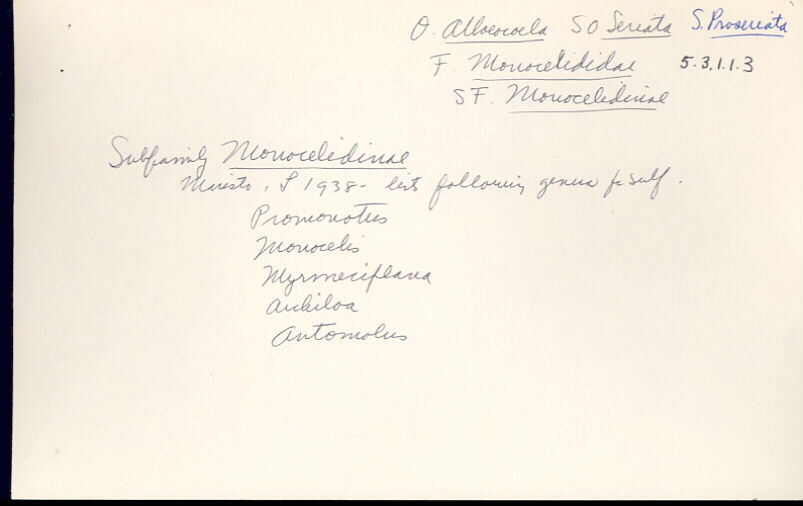 O. Alloeocoela SO Seriata S. Proseriata
F. Monocelididae 5.3.1.1.3
SF. Monocelidinae
Subfamily Monocelidinae
S 1938- lists following genera for subf.
Promonotus
Monocelis
Myrmeciplana
Archiloa
Automolus